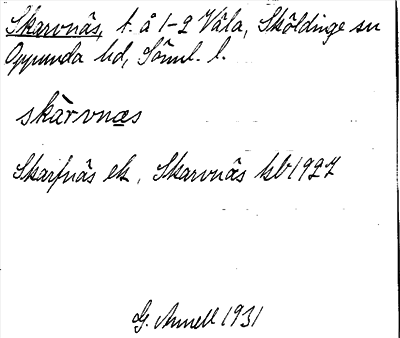 Skarvnäs, t. å 1-2 Väla, Sköldinge sn
Oppunda hd, Söml. l.
skärvnæs
Skarfnäs ek, Skarvnäs kb 1927
G. Annell 1931